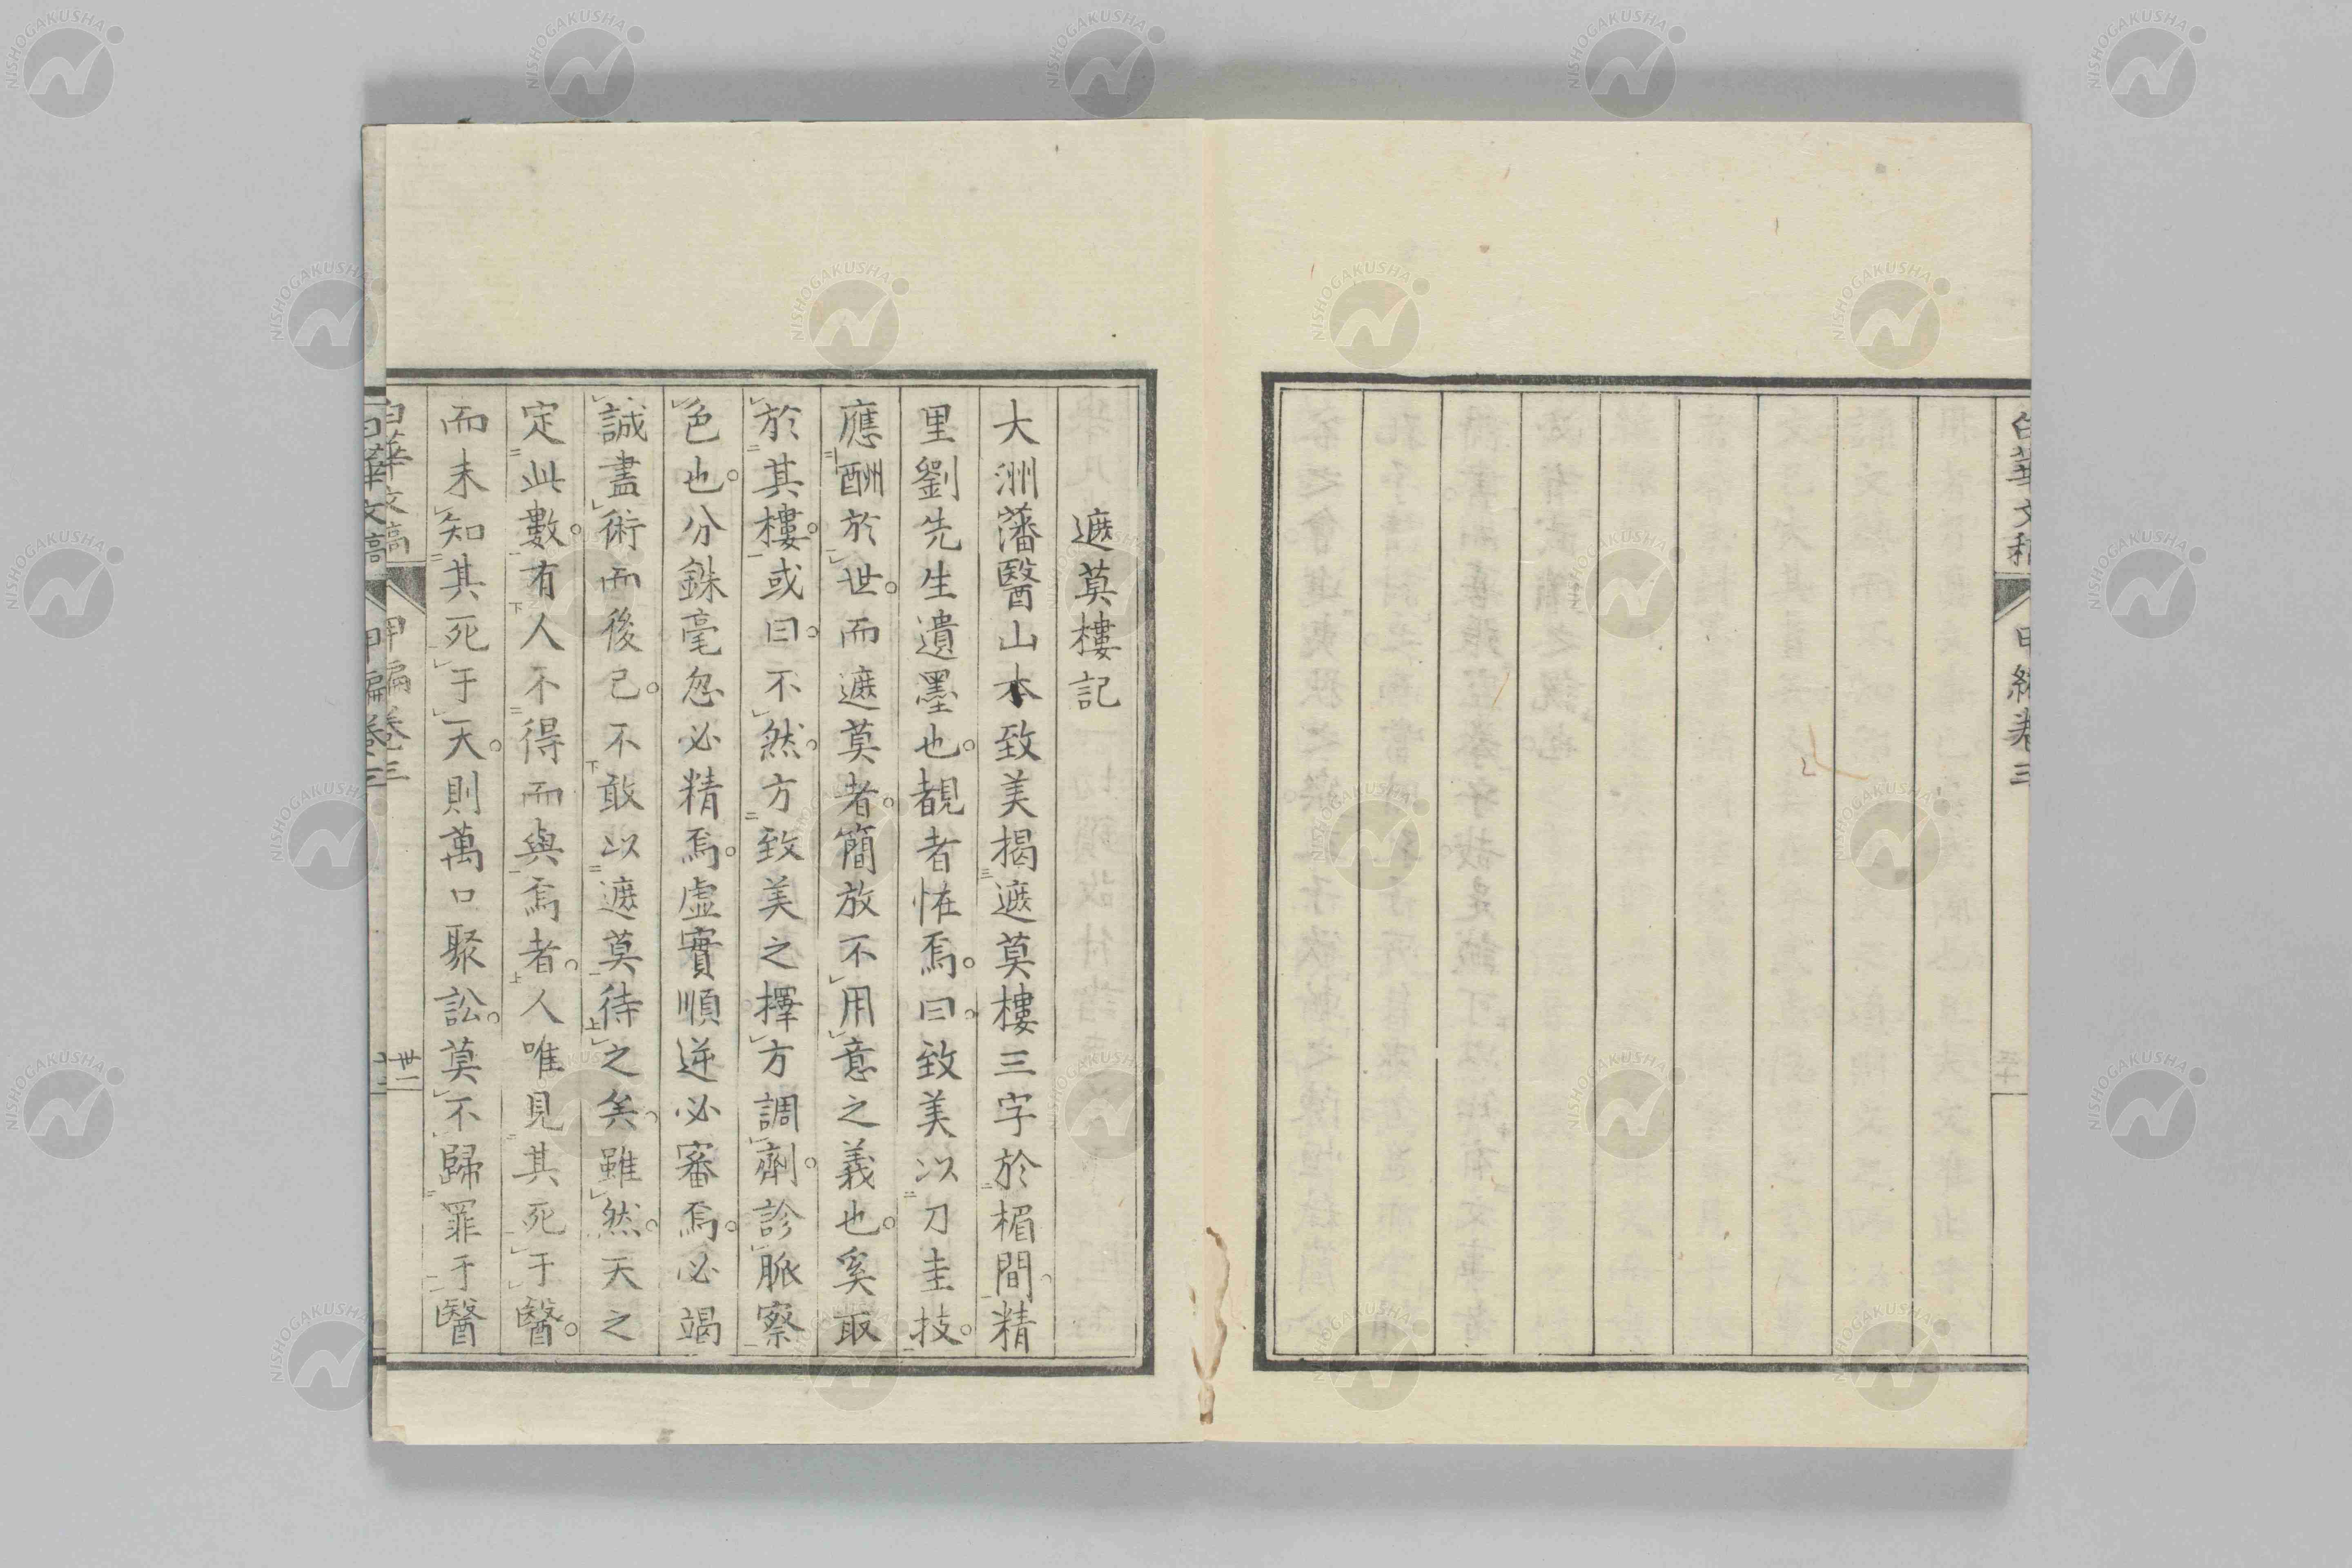 白華文稿 甲編卷三
遮莫樓記
大洲藩醫山本致美揭遮莫樓三字於楣間精
里劉先生遺墨也覩者怪焉曰致美以刀圭技
應酬於世而遮莫者簡放不用意之義也奚取
於其樓或曰不然方致美之擇方調劑診脈察
色也分銖毫忽必精焉虛實順逆必審焉必竭
誠盡術而後已不敢以遮莫待之矣雖然天之
定此數有人不得而與焉者人唯見其死于醫
而未知其死于天則萬口聚訟莫不歸罪于醫
白華文稿 甲編卷三 卅一
NISHOGAKUSHA